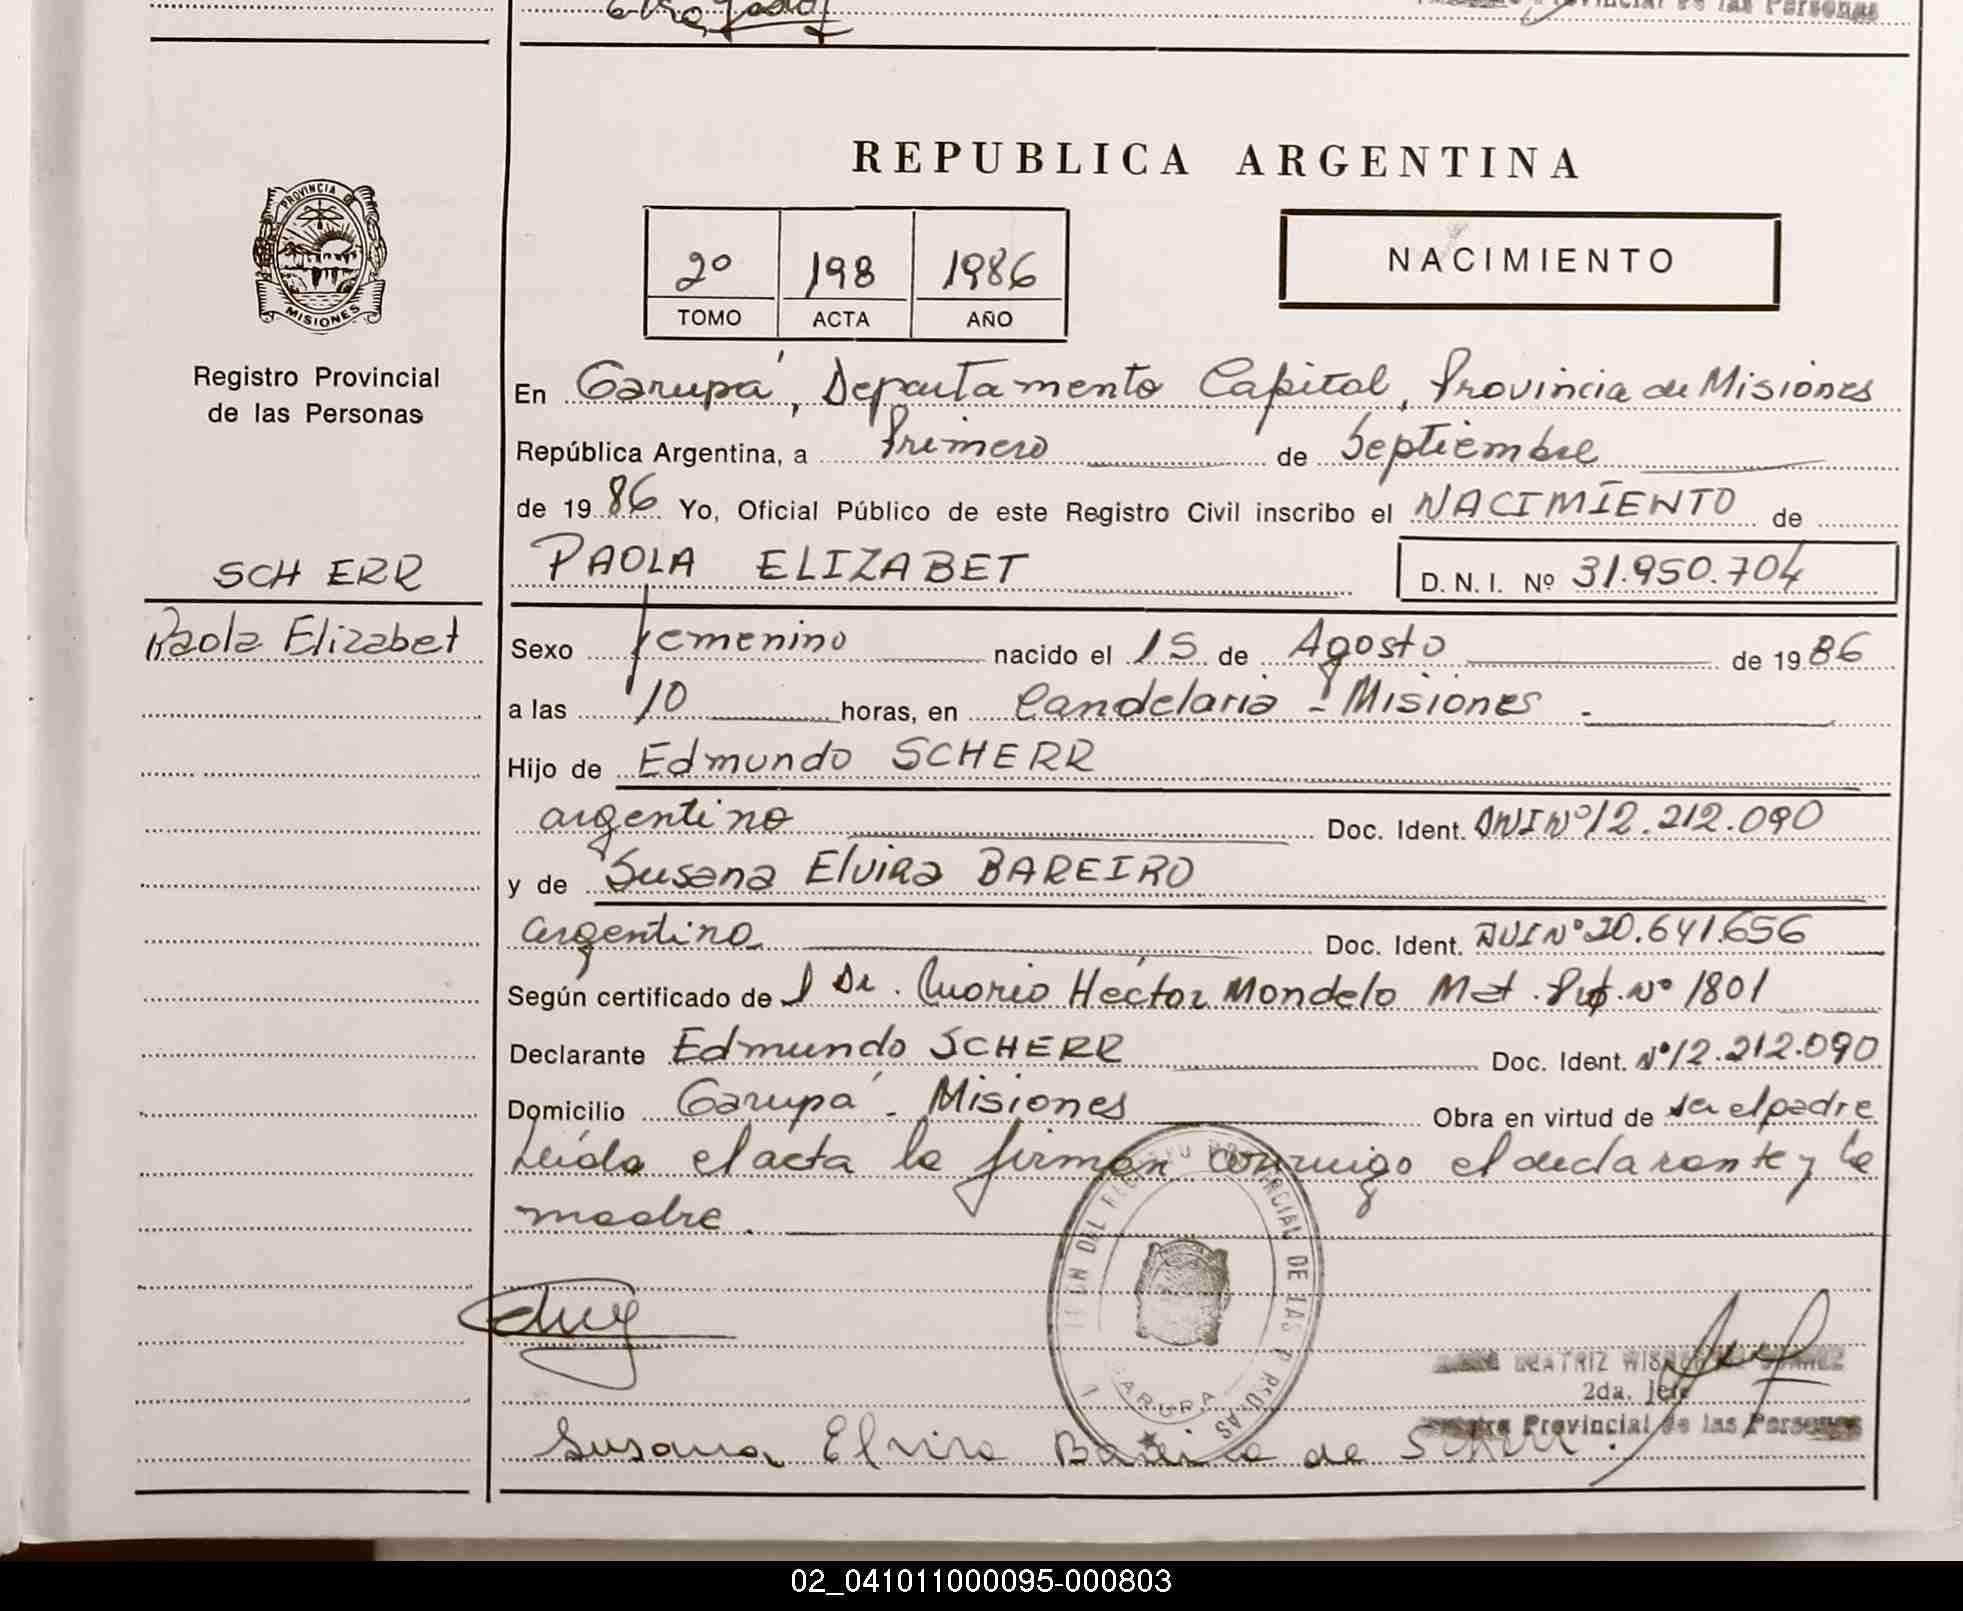 REPUBLICA ARGENTINA
PROVINCIA DE
MISIONES
2º 198 1986
TOMO ACTA AÑO
NACIMIENTO
Registro Provincial
de las Personas
En Garupá, Departamento Capital, Provincia de Misiones
República Argentina, a Primero de Septiembre
de 1986 Yo, Oficial Público de este Registro Civil inscribo el NACIMIENTO de
PAOLA ELIZABET D. N. I. Nº 31.950.704
SCHERR
Paola Elizabet
Sexo femenino nacido el 15 de Agosto de 1986
a las 10 horas, en Candelaria - Misiones
Hijo de Edmundo SCHERR
argentino Doc. Ident. DNI Nº 12.212.090
y de Susana Elvira BAREIRO
argentina Doc. Ident. DNI Nº 20.641.656
Según certificado de l Dr. Mario Héctor Mondelo Mat. Nº 1801
Declarante Edmundo SCHERR Doc. Ident. Nº 12.212.090
Domicilio Garupá - Misiones Obra en virtud de ser el padre
Leída el acta la firman conmigo el declarante y la
madre.
DEL REGISTRO PROVINCIAL DE LAS PERSONAS
GARUPA
BEATRIZ
2da. Jefe
Provincial de las Personas
Susana Elvira Bareiro de Scherr.
02_041011000095-000803